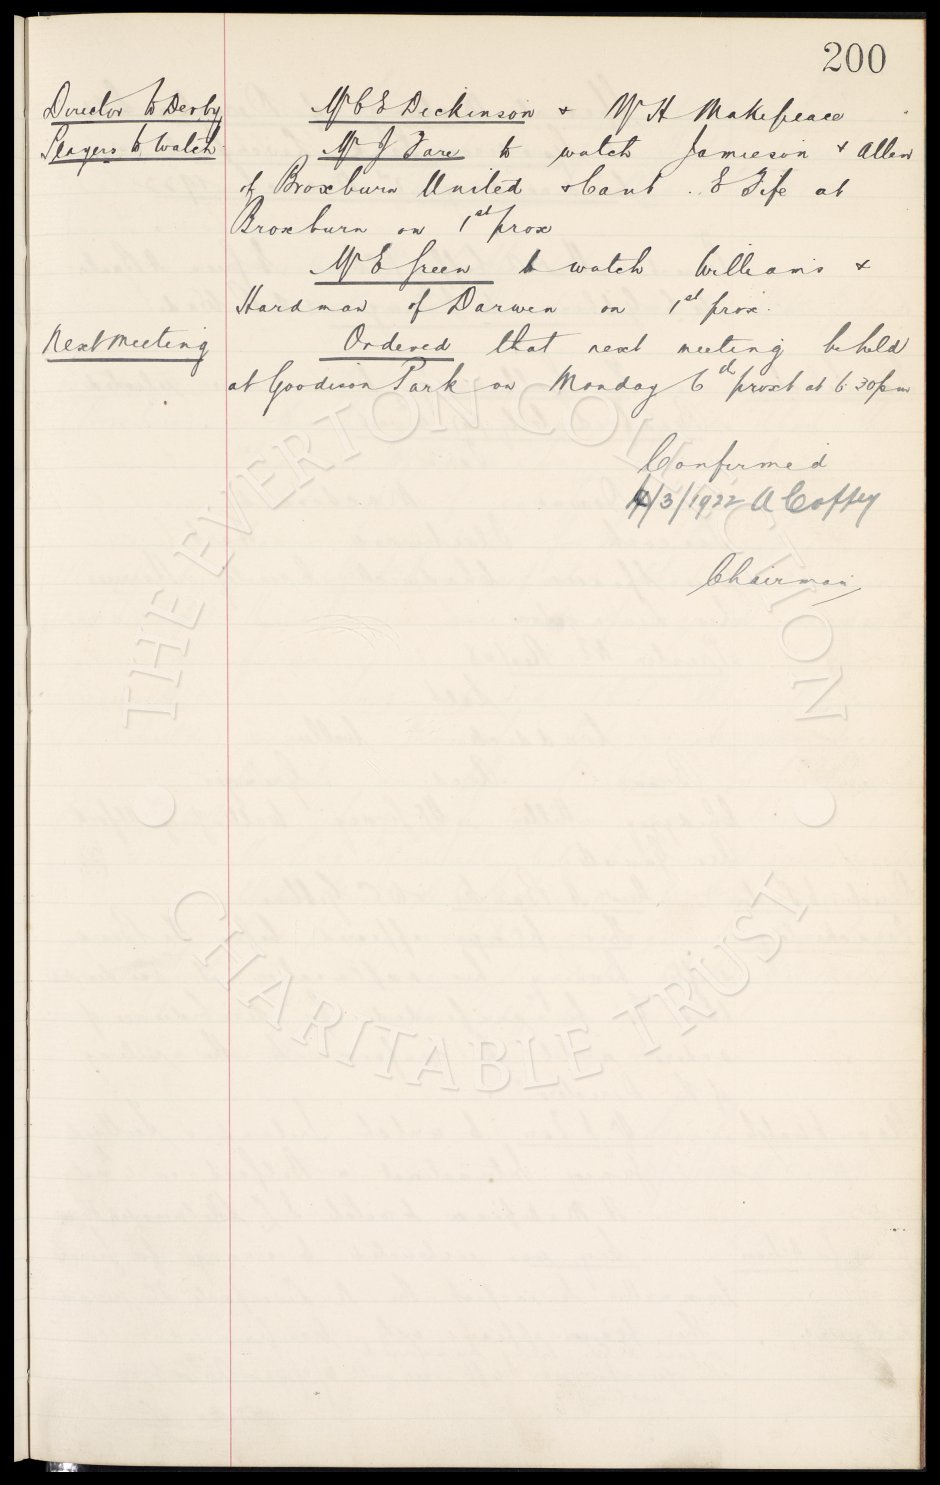 200
Director to Derby Mr C E Dickinson & Mr H Makepeace
Players to Watch Mr J Fare to watch Jamieson & Allen
of Broxburn United & Cant . E Fife at
Broxburn on 1st prox
Mr E Green to watch Williams &
Hardman of Darwen on 1st prox.
Next Meeting Ordered that next meeting be held
at Goodison Park on Monday 6th proxt at 6.30pm
Confirmed
/3/1922 A Coffey
Chairman
THE EVERTON COLLECTION
CHARITABLE TRUST